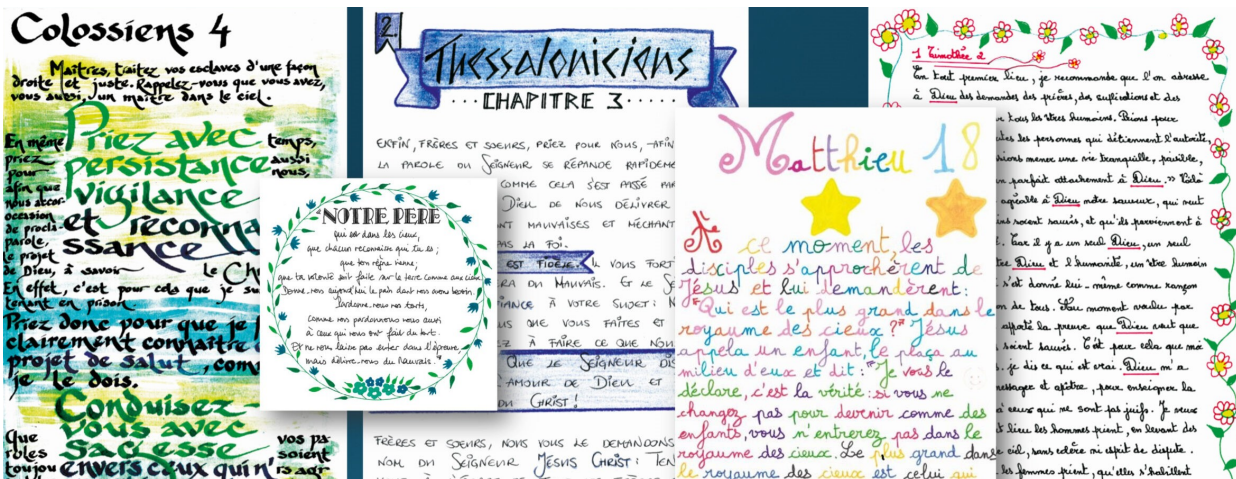 Colossiens 4
Maîtres, traitez vos esclaves d'une façon
droite et juste. Rappelez-vous que vous avez,
vous aussi, un maître dans le ciel.
En même temps,
priez aussi
pour nous,
afin que
nous accor-
occasion
de procla-
parole,
le projet
de Dieu, à savoir le Ch
Priez avec
persistance
vigilance
et reconna
ssance
En effet, c'est pour cela que je su
tenant en prison.
Priez donc pour que je
clairement connaître
projet de salut, com
je le dois.
Conduisez
vous avec
sagesse
Que vos pa-
roles soient
toujou envers ceux qui n'
NOTRE PERE
qui es dans les cieux,
que chacun reconnaisse qui tu es;
que ton règne vienne;
que ta volonté soit faite sur la terre comme aux cieux.
Donne-nous aujourd'hui le pain dont nous avons besoin.
Pardonne-nous nos torts,
comme nous pardonnons nous aussi
à ceux qui nous ont fait du tort.
Et ne nous laisse pas entrer dans l'épreuve,
mais délivre-nous du Mauvais.
2
Thessaloniciens
CHAPITRE 3
ENFIN, FRÈRES ET SOEURS, PRIEZ POUR NOUS, AFIN
LA PAROLE DU SEIGNEUR SE RÉPANDE RAPIDEME
COMME CELA S'EST PASSÉ PAR
DIEU DE NOUS DÉLIVRER
NT MAUVAISES ET MÉCHANT
PAS LA FOI.
EST FIDÈLE. IL VOUS FORT
RA DU MAUVAIS. ET LE SE
IANCE À VOTRE SUJET: N
US QUE VOUS FAITES ET
Z À FAIRE CE QUE NOU
QUE LE SEIGNEUR DI
AMOUR DE DIEU ET
DU CHRIST!
FRÈRES ET SOEURS, NOUS VOUS LE DEMANDONS
NOM DU SEIGNEUR JÉSUS CHRIST: TEN
Matthieu 18
A ce moment, les
disciples s'approchèrent de
Jésus et lui demandèrent:
"Qui est le plus grand dans le
royaume des cieux?" Jésus
appela un enfant, le plaça au
milieu d'eux et dit: "Je vous le
déclare, c'est la vérité: si vous ne
changez pas pour devenir comme des
enfants, vous n'entrerez pas dans le
royaume des cieux. Le plus grand dans
le royaume des cieux est celui qui
1 Timothée 2
En tout premier lieu, je recommande que l'on adresse
à Dieu des demandes, des prières, des suplications et des
r tous les êtres humains. Prions pour
tes les personnes qui détiennent l'autorité,
sions mener une vie tranquille, paisible,
n parfait attachement à Dieu. Voilà
agréable à Dieu notre sauveur, qui veut
ins soient sauvés, et qu'ils parviennent à
Car il y a un seul Dieu, un seul
re Dieu et l'humanité, un être humain
s'est donné lui-même comme rançon
n de tous. Au moment voulu par
apporté la preuve que Dieu veut que
s soient sauvés. C'est pour cela que moi
s. je dis ce qui est vrai. Dieu m'a
messager et apôtre, pour enseigner la
à ceux qui ne sont pas juifs. Je veux
t lieu les hommes prient, en levant des
e ciel, sans colère ni esprit de dispute.
les femmes prient, qu'elles s'habillent